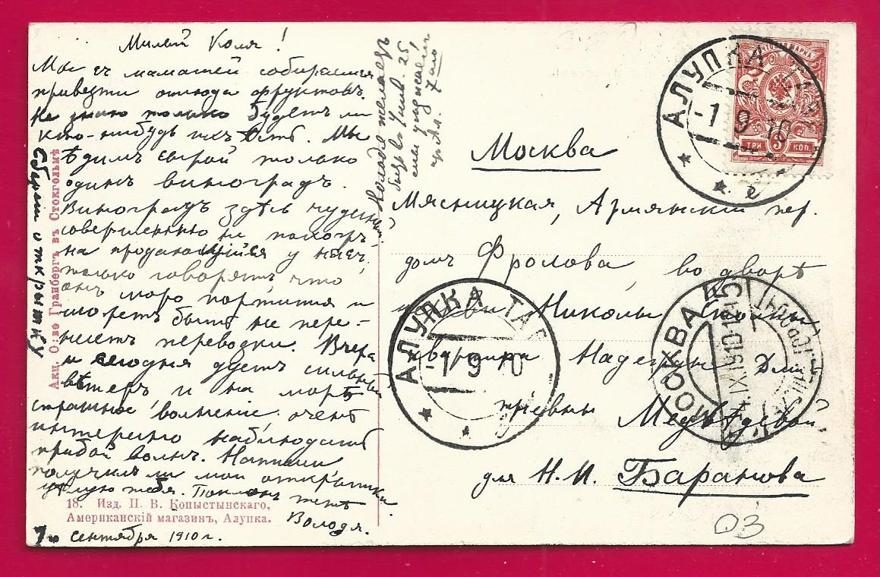 Милый Коля!
Мы съ мамашей собираемся
привезти отсюда фруктовъ.
Не знаю только будетъ ли
кто-нибудь ихъ ѣсть. Мы
ѣдимъ сырой только
одинъ виноградъ.
Виноградъ здѣсь чудесный
совершенно не похожъ
на продающійся у насъ,
только говорятъ, что
онъ скоро портится и
можетъ быть не пере-
несетъ перевозки. Вчера
и сегодня дуетъ сильный
вѣтеръ и на морѣ
страшное волненіе. очень
интересно наблюдать
прибой волнъ. Напиши
получилъ ли мои открытки
цѣлую тебя. Поклонъ тетѣ
Володя.
1го сентября 1910 г.
Сбереги открытку
Акц. О-во Гранбергъ въ Стокгольмѣ
18. Изд. П. В. Копыстынскаго,
Американскій магазинъ, Алупка.
Москва
Мясницкая, Армянскій пер.
домъ Фролова, во дворѣ
церкви Николы Столпы
квартира Надежды Дми
тревны Медвѣдевой
для Н. И. Баранова
АЛУПКА ТАВР
-1 9 10
АЛУПКА ТАВ
-1 9 10
МОСКВА
ТРИ 3 КОП.
03